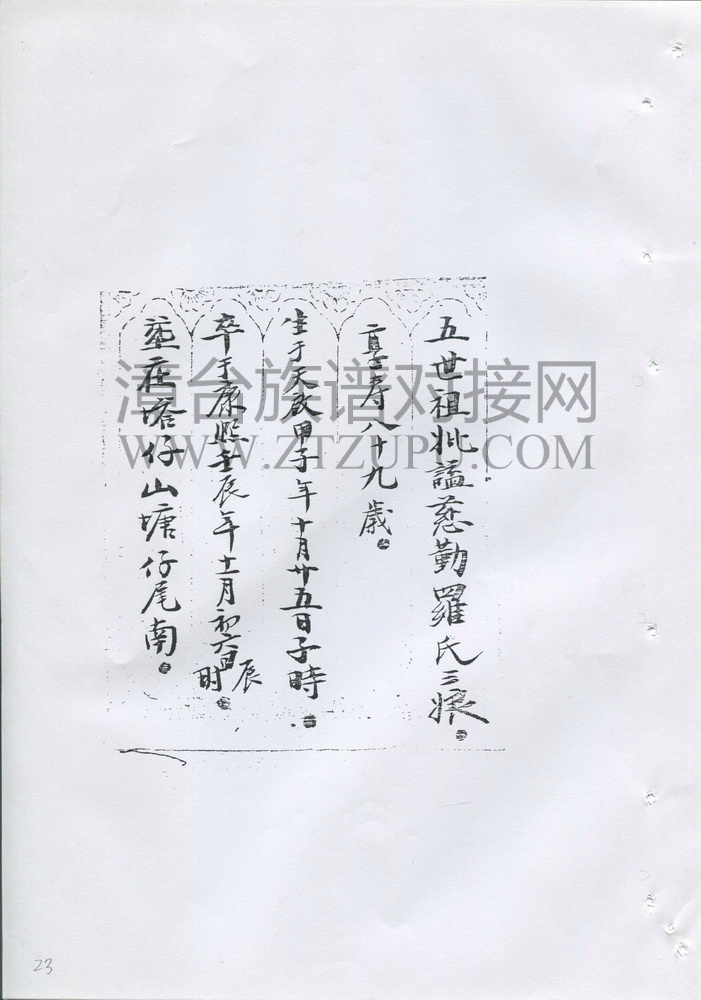 五世祖妣謚慈勤羅氏三娘
享寿八十九歳
生于天啟甲子年十月廿五日子時
卒于康熙壬辰年十一月初六日辰时
塟在塔仔山塘仔尾南
漳台族谱对接网
WWW.ZTZUPU.COM
23